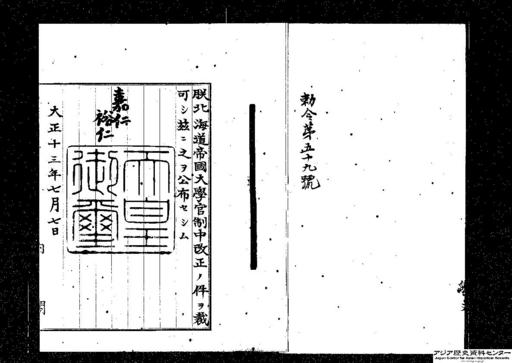 勅令第五十九號
朕北海道帝國大學官制中改正ノ件ヲ裁
可シ茲ニ之ヲ公布セシム
嘉仁
裕仁
天皇
御璽
大正十三年七月七日
アジア歴史資料センター
Japan Center for Asian Historical Records